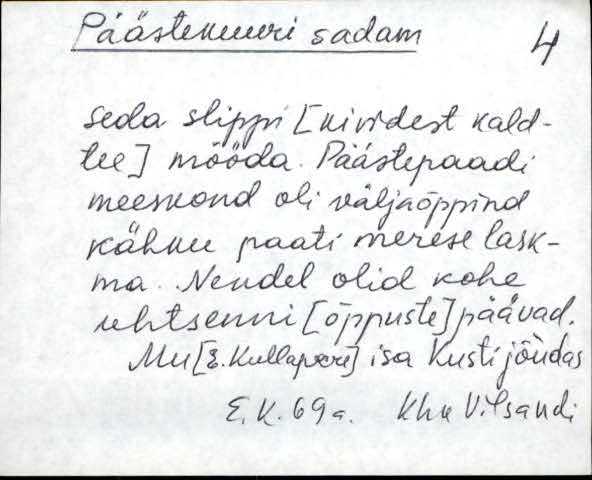 Päästekuuri sadam
4
seda slippi [kividest kald-
tee] mööda. Päästepaadi
meeskond oli väljaõppind
kähku paati merese lask-
ma. Nendel olid kohe
uhtsenni [õppuste] päävad.
Mu [E. Kullapere] isa Kusti jõudas
E. K. 69a. Khk Vilsandi